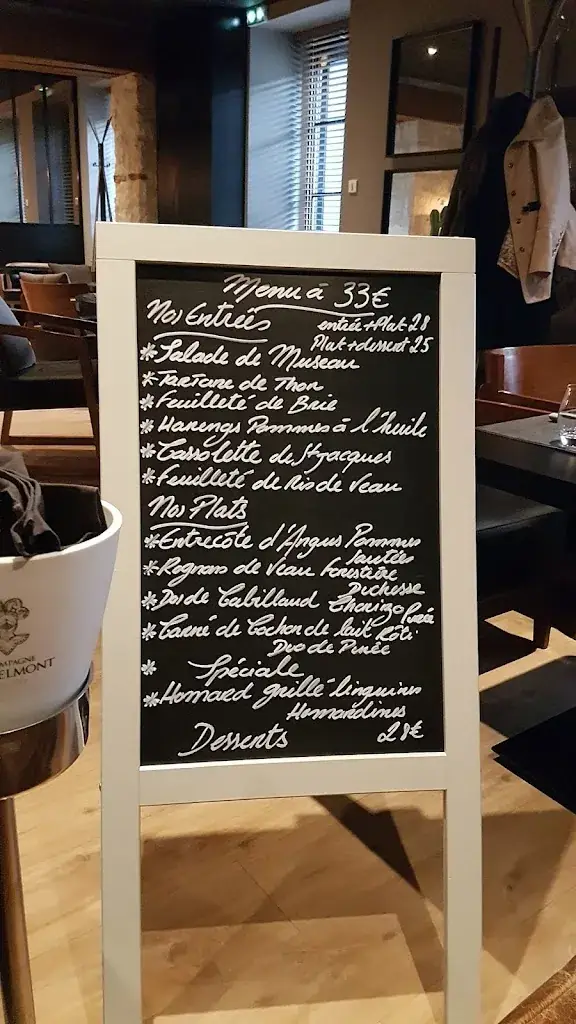 Menu à 33€
Nos Entrées
entrée + Plat 28
Plat + dessert 25
* Salade de Museau
* Tartare de Thon
* Feuilleté de Brie
* Harengs Pommes à l'huile
* Cassolette de St Jacques
* Feuilleté de Ris de Veau
Nos Plats
* Entrecôte d'Angus Pommes
Sautées
* Rognons de Veau Forestière
Duchesse
* Dos de Cabillaud Chorizo Purée
* Carré de Cochon de lait Rôti
Duo de Purée
* Spéciale
* Homard grillé linguines
Homardines
Desserts 28€
ELMONT